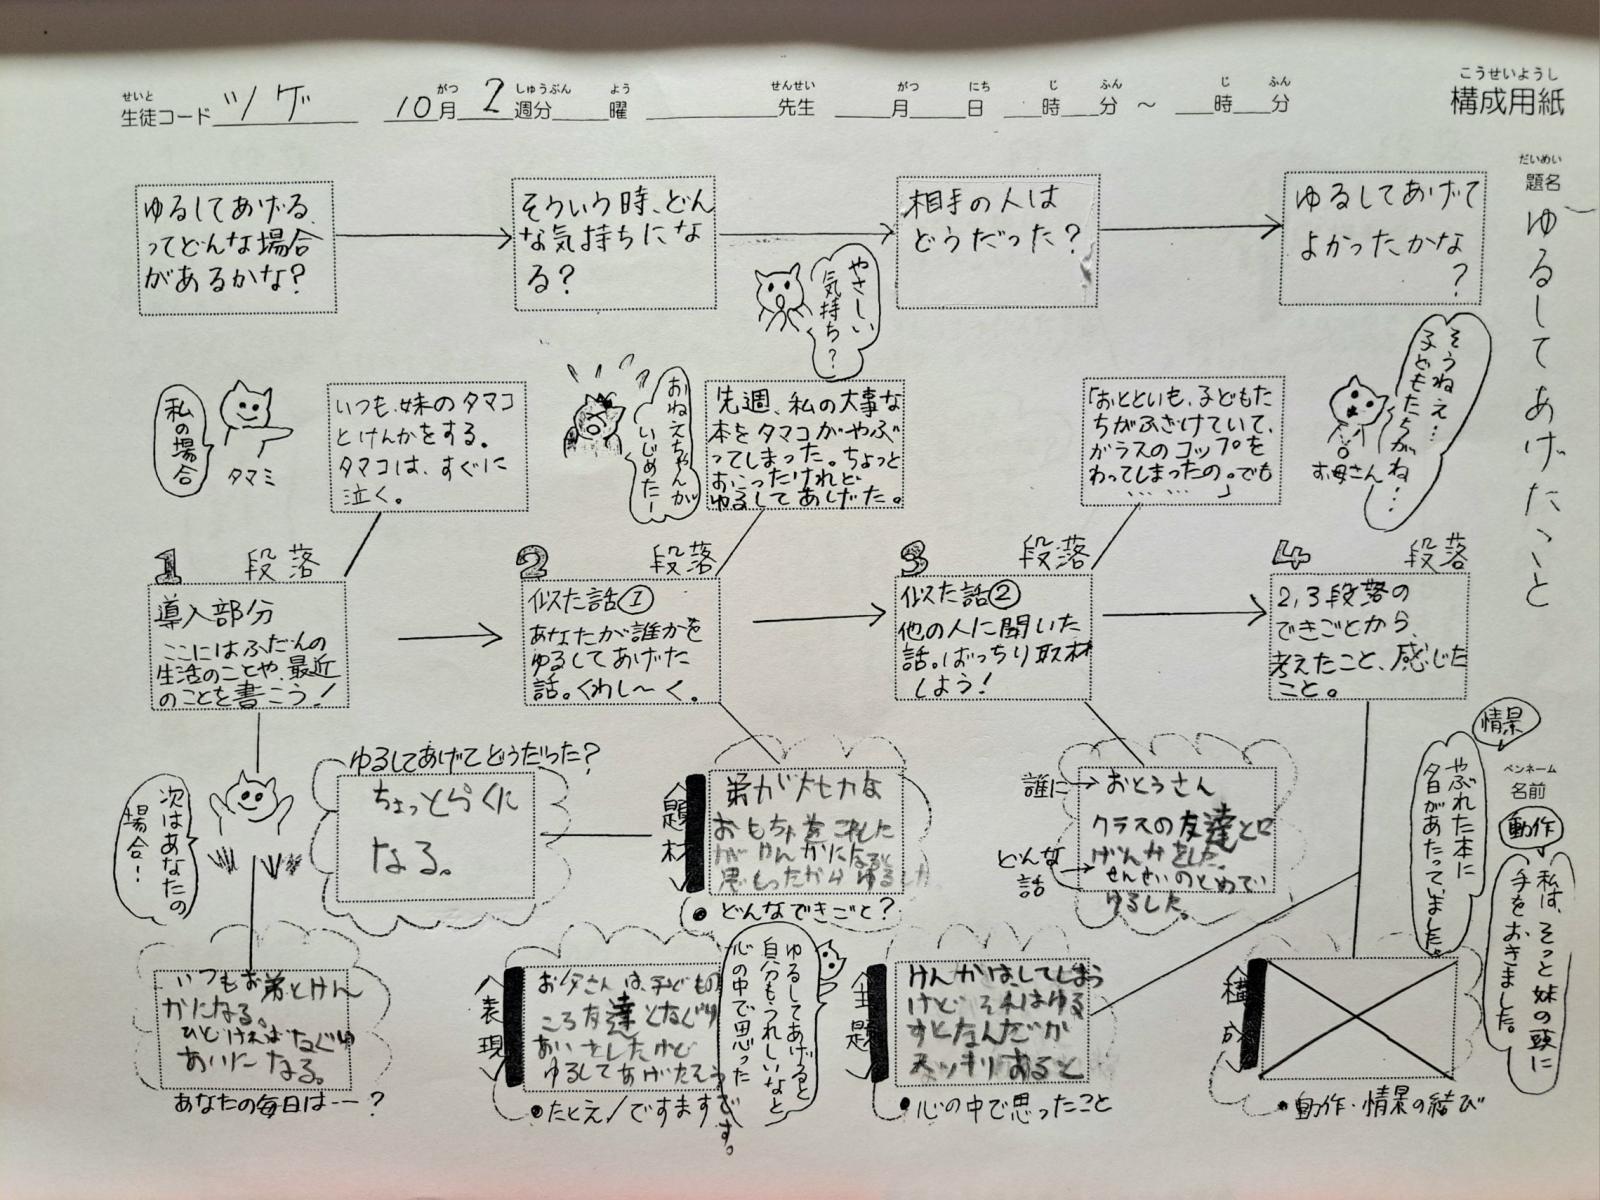 せいと
生徒コード ツゲ
がつ しゅうぶん よう
10月 2 週分 曜
せんせい
先生
がつ にち じ ふん じ ふん
月 日 時 分 ～ 時 分
こうせいようし
構成用紙
だいめい
題名
ゆるしてあげたこと
ゆるしてあげる、
ってどんな場合
があるかな?
そういう時、どん
な気持ちにな
る?
やさしい
気持ち?
相手の人は
どうだった?
ゆるしてあげて
よかったかな
?
私の場合
タマミ
いつも、妹のタマコ
とけんかをする。
タマコは、すぐに
泣く。
おねえちゃんが
いじめたー
先週、私の大事な
本をタマコがやぶ
ってしまった。ちょっと
おこったけれど
ゆるしてあげた。
「おとといも、子どもた
ちがふざけていて、
ガラスのコップを
わってしまったの。でも
… … …」
お母さん
そうねえ…
子どもたちがね…
1 段落
導入部分
ここにはふだんの
生活のことや、最近
のことを書こう!
2 段落
似た話①
あなたが誰かを
ゆるしてあげた
話。くわし〜く。
3 段落
似た話②
他の人に聞いた
話。ばっちり取材
しよう!
4 段落
2,3段落の
できごとから、
考えたこと、感じた
こと。
次はあなたの
場合!
ゆるしてあげてどうだった?
ちょっとらくに
なる。
〈題材〉
弟が大切な
おもちゃをこわした
がけんかになると
思ったからゆるした
●どんなできごと?
誰に→おとうさん
どんな話→
クラスの友達と口
げんかをした。
せんせいのとめで
ゆるした。
情景
やぶれた本に
夕日があたっていました。
ペンネーム
名前
動作
私は、そっと妹の頭に
手をおきました。
いつもお弟とけん
かになる。
ひどければなぐり
あいになる。
あなたの毎日は…?
〈表現〉
お父さんは、子どもの
ころ友達となぐり
あいをしたけど
ゆるしてあげたそうです。
●たとえ/ですます
ゆるしてあげると
自分もうれしいなと
心の中で思った
〈主題〉
けんかはしてしまう
けど それはゆる
すとなんだか
スッキリあると
●心の中で思ったこと
〈構成〉
●動作・情景の結び